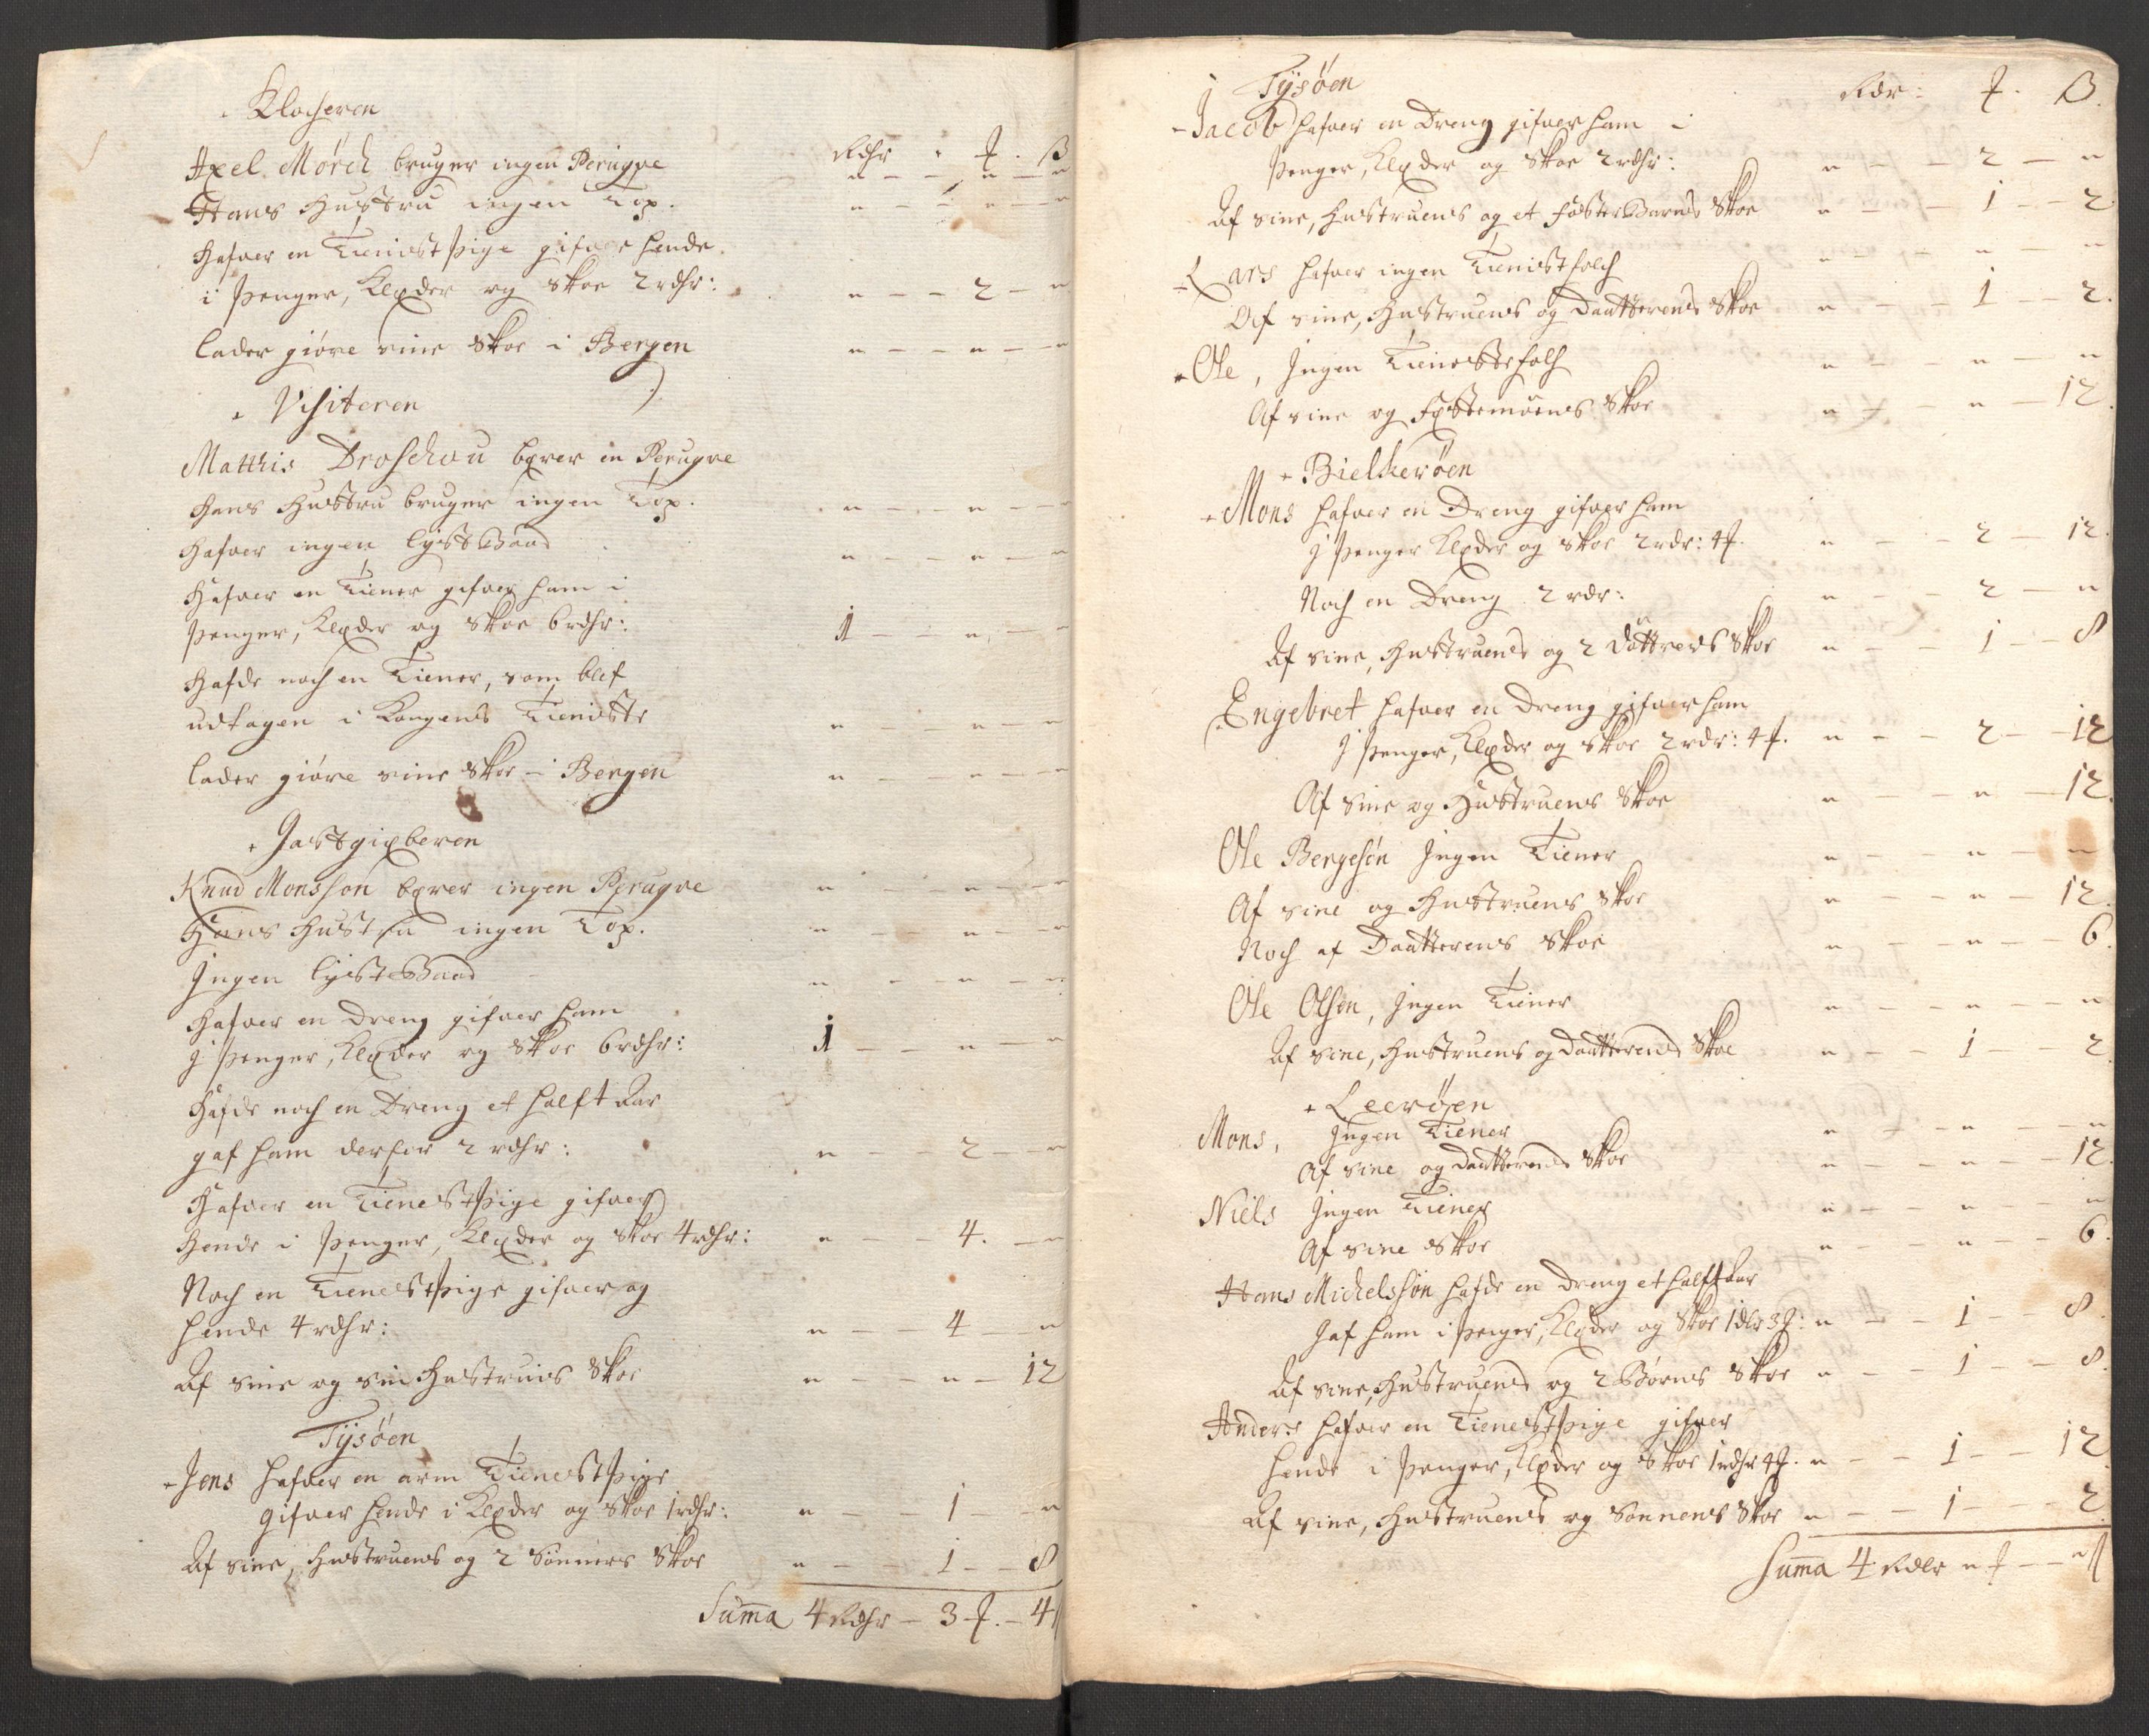 Klocheren
Rdhr · ƒ · β
Axel Mörch bruger ingen Perugve " – – " – "
Hans Hustru ingen Top. " – – " – "
Hafver en Tienist Pige gifver hende
i Penger, Klæder og Skoe 2 rdhr: " – – 2 – "
lader giöre sine Skoe i Bergen " – – " – "
Visiteren
Matthis Droschou bærer en Perugve
Hans Hustru bruger ingen Top. " – – " – "
Hafver ingen lyst Baad " – – " – "
Hafver en Tiener gifver ham i
Penger, Klæder og Skoe 6 rdhr: 1 – – " – "
Hafde noch en Tiener, som blef
udtagen i Kongens Tieniste " – – " – "
lader giöre sine Skoe i Bergen " – – " – "
Gastgiæberen
Knud Monsson bærer ingen Perugve " – – " – "
Hans Hustru ingen Top. " – – " – "
Ingen lyst Baad " – – " – "
Hafver en Dreng gifver ham
I Penger, Klæder og Skoe 6 rdhr: 1 – – " – "
Hafde noch en Dreng et halft Aar
gaf ham derfor 2 rdhr: " – – 2 – "
Hafver en Tienest Pige gifver
Hende i Penger, Klæder og Skoe 4 rdhr: " – – 4. – "
Noch en Tienest Pige gifver og
hende 4 rdhr: " – – 4 – "
Af sine og sin Hustrues Skoe " – – " – 12
Tysöen
Jens hafver en arm Tienest Pige
gifver hende i Klæder og Skoe 1 rdhr: " – – 1 – "
Af sine, Hustruens og 2 Sönners Skoe " – – 1 – 8
Suma 4 Rdhr – 3 ƒ. – 4
Tysöen
Rdr: ƒ. β.
Jacob hafver en Dreng gifver ham i
Penger, Klæder og Skoe 2 rdhr: " – – 2 – "
Af sine, Hustruens og et foster Barns Skoe " – – 1 – 2
Lars hafver ingen Tienistfolch " – – " – "
Af sine, Hustruens og Daatterens Skoe " – – 1 – 2.
Ole, Ingen Tienestefolch " – – " – "
Af sine og Festemöens Skoe " – – " – 12.
Bielkeröen
Mons hafver en Dreng gifver ham
I Penger Klæder og Skoe 2 rdr: 4 ƒ. " – – 2 – 12.
Noch en Dreng 2 rdr: " – – 2 – "
Af sine, Hustruens og 2 Döttrers Skoe " – – 1 – 8
Engebret hafver en Dreng gifver ham
I Penger, Klæder og Skoe 2 rdr: 4 ƒ. " – – 2 – 12
Af Sine og Hustruens Skoe " – – " – 12.
Ole Bergesön Ingen Tiener " – – " – "
Af sine og Hustruens Skoe " – – " – 12.
Noch af Daatterens Skoe " – – " – 6.
Ole Olsen, Ingen Tiener " – – " – "
Af sine, Hustruens og Daatterens Skoe " – – 1 2
Leeröen
Mons, Ingen Tiener " – – " – "
Af sine og Daatterens Skoe " – – " – 12.
Niels Ingen Tiener " – – " – "
Af sine Skoe " – – " – 6.
Hans Michelsson hafde en Dreng et halft Aar
Gaf ham i Penger, Klæder og Skoe 1 dlr 3 ƒ: " – – 1 – 8.
Af sine, Hustruens og 2 Börns Skoe " – – 1 – 8.
Anders hafver en Tienest Pige gifver
hende i Penger, Klæder og Skoe 1 rdhr 4 ƒ. " – – 1 – 12
Af sine, Hustruens og Sönnens Skoe " – – 1 – 2
Suma 4 Rdlr " ƒ – "